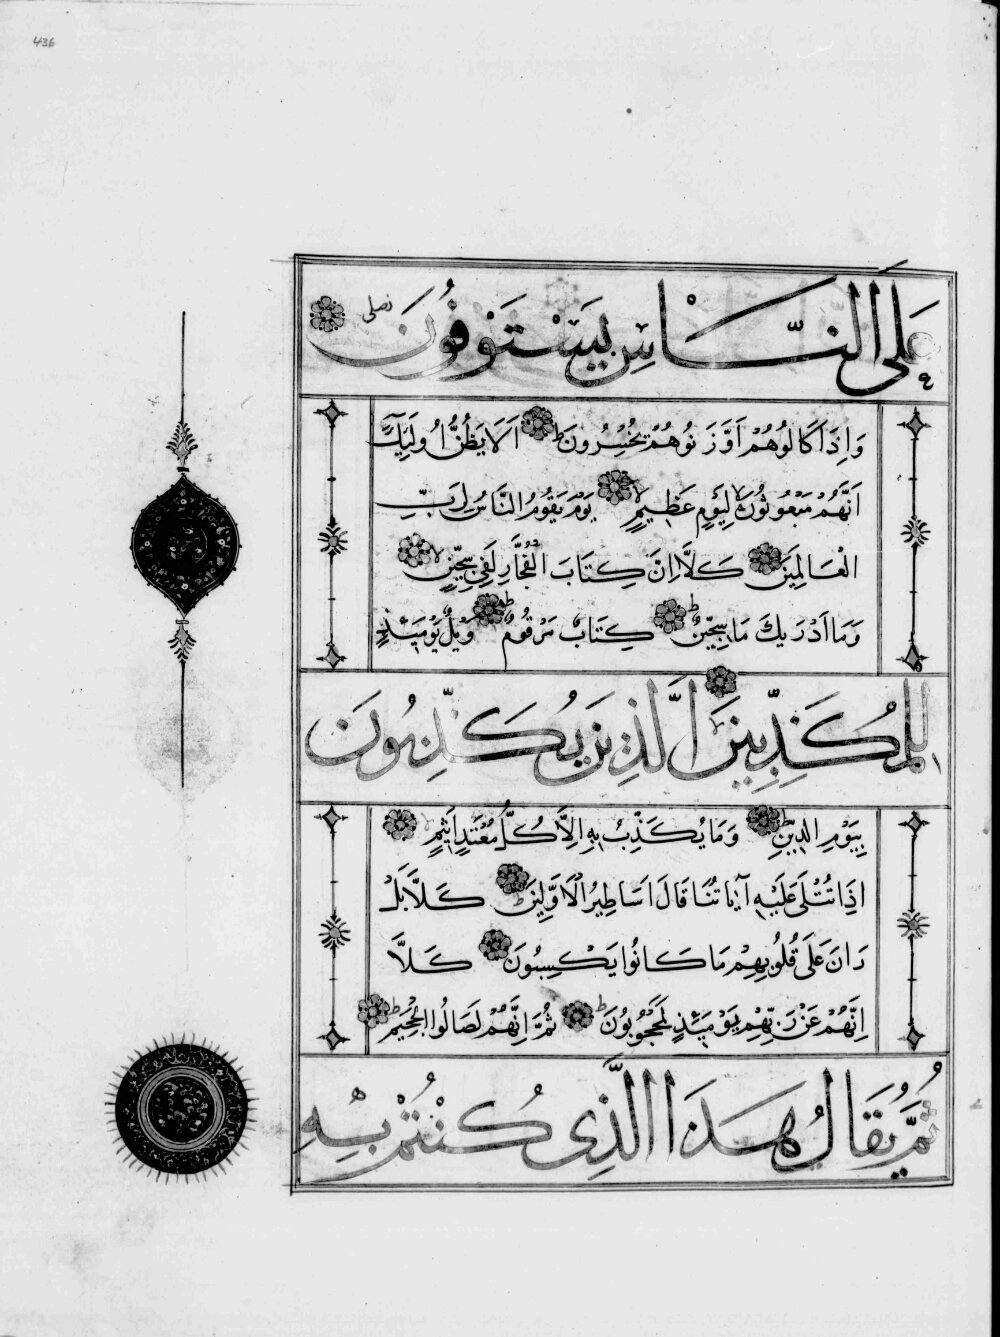 436
عَلَى النَّاسِ يَسْتَوْفُونَ
وَاِذَا كَالُوهُمْ اَوْ وَزَنُوهُمْ يُخْسِرُونَ ط اَلَا يَظُنُّ اُولَئِكَ
اَنَّهُمْ مَبْعُوثُونَ لا لِيَوْمٍ عَظِيمٍ لا يَوْمَ يَقُومُ النَّاسُ لِرَبِّ
الْعَالَمِينَ كَلَّا اِنَّ كِتَابَ الْفُجَّارِ لَفِي سِجِّينٍ
وَمَا اَدْرَيكَ مَا سِجِّينٌ ط كِتَابٌ مَرْقُومٌ ط وَيْلٌ يَوْمَئِذٍ
لِلْمُكَذِّبِينَ اَلَّذِينَ يُكَذِّبُونَ
بِيَوْمِ الدِّينِ ط وَمَا يُكَذِّبُ بِهِ اِلَّا كُلُّ مُعْتَدٍ اَثِيمٍ
اِذَا تُتْلَى عَلَيْهِ آيَاتُنَا قَالَ اَسَاطِيرُ الْاَوَّلِينَ ط كَلَّا بَلْ
رَانَ عَلَى قُلُوبِهِمْ مَا كَانُوا يَكْسِبُونَ كَلَّا
اِنَّهُمْ عَنْ رَبِّهِمْ يَوْمَئِذٍ لَمَحْجُوبُونَ ط ثُمَّ اِنَّهُمْ لَصَالُوا الْجَحِيمِ ط
ثُمَّ يُقَالُ هَذَا الَّذِي كُنْتُمْ بِهِ